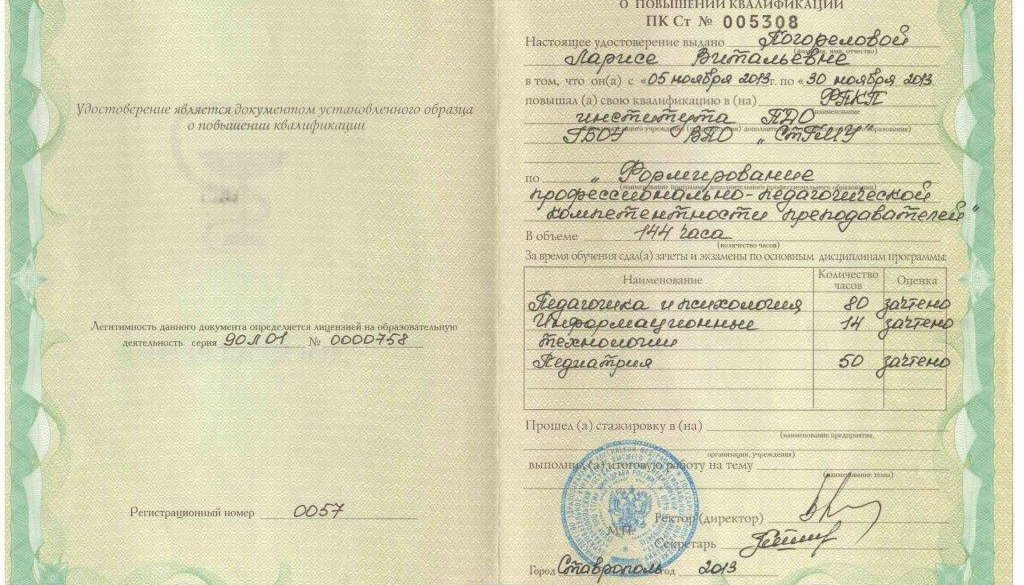 Удостоверение является документом установленного образца
о повышении квалификации
Легитимность данного документа определяется лицензией на образовательную
деятельность серия 90Л01 № 0000758
Регистрационный номер 0057
О ПОВЫШЕНИИ КВАЛИФИКАЦИИ
ПК Ст № 005308
Настоящее удостоверение выдано Погореловой
(фамилия, имя, отчество)
Ларисе Витальевне
в том, что он(а) с «05 ноября 2013г. по «30 ноября 2013
повышал (а) свою квалификацию в (на) ФПКП
института ПДО
ГБОУ ВПО „СтГМУ"
по „Формирование
профессионально-педагогической
компетентности преподавателей"
В объеме 144 часа
(количество часов)
За время обучения сдал(а) зачеты и экзамены по основным дисциплинам программы:
Наименование Количество часов Оценка
Педагогика и психология 80 зачтено
Информационные 14 зачтено
технологии
Педиатрия 50 зачтено
Прошел (а) стажировку в (на)
(наименование предприятия,
организации, учреждения)
выполнил (а) итоговую работу на тему
(наименование темы)
М.П. Ректор (директор)
Секретарь
Город Ставрополь год 2013